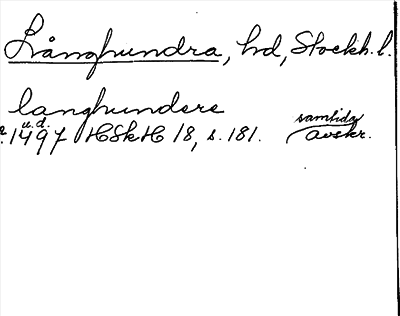 Långhundra, hd, Stockh. l.
langhundere
u. d.
1497 HSkH 18, s. 181. samtida avskr.